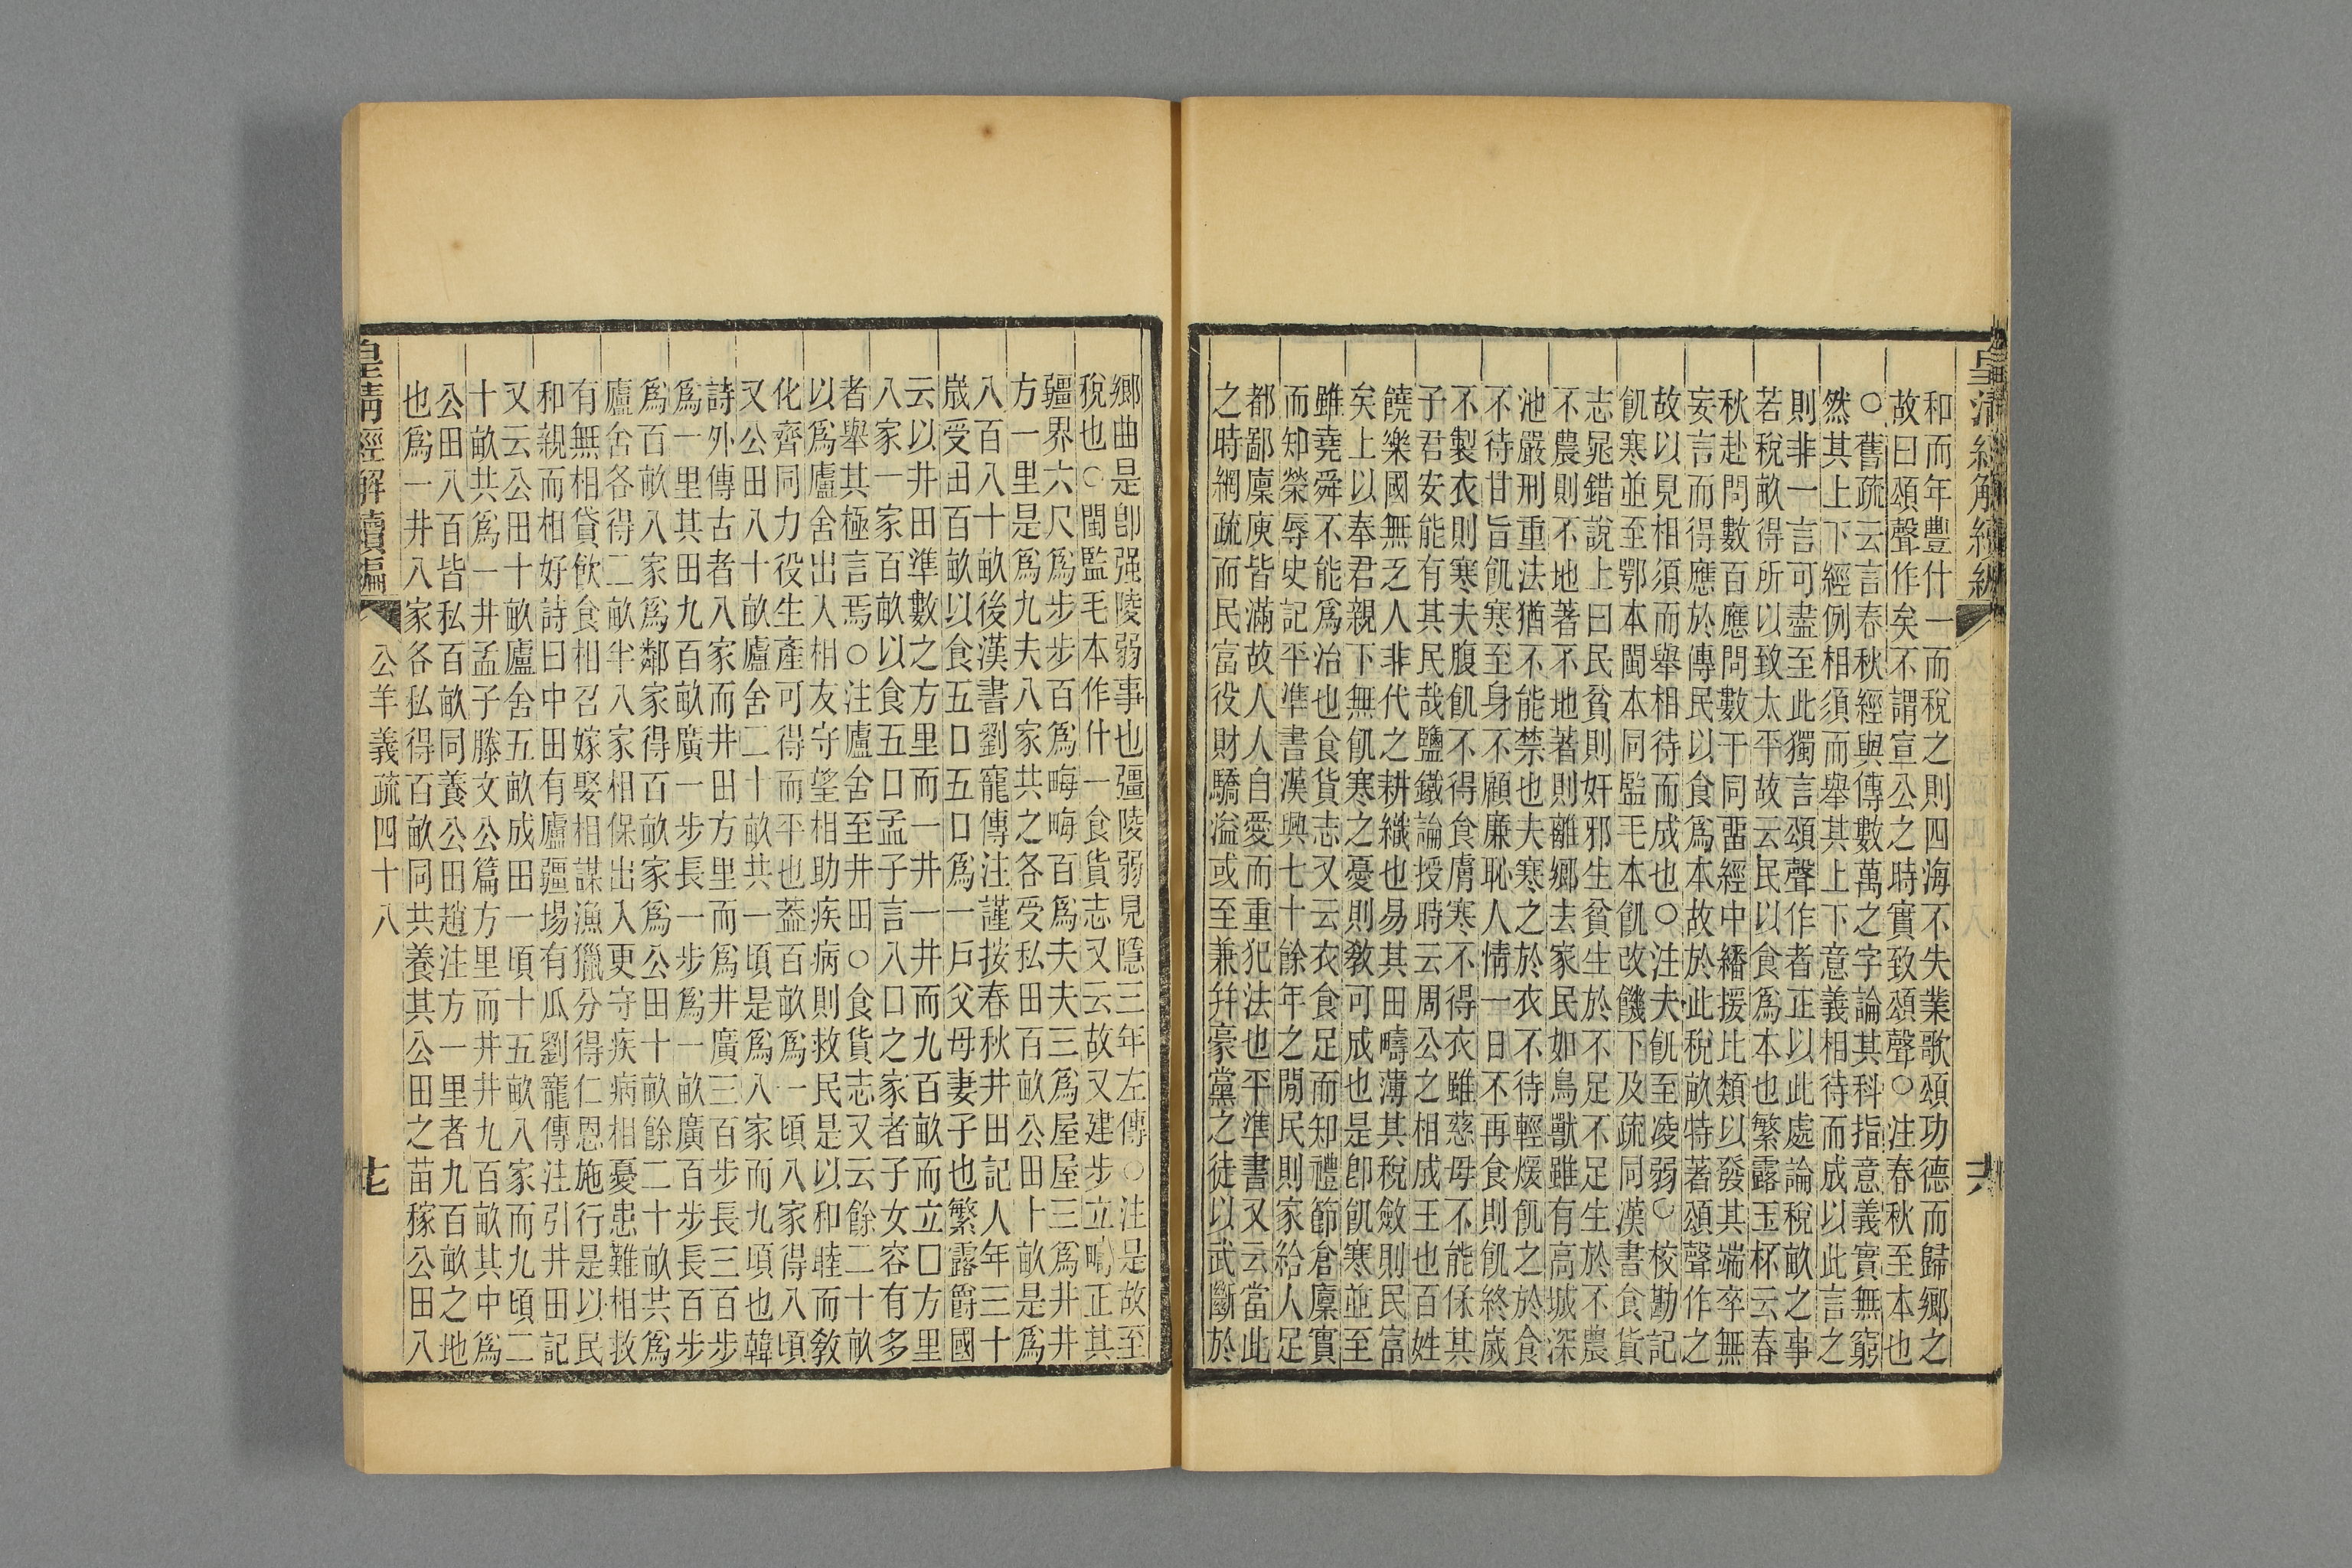 皇清經解續編
和而年豐什一而稅之則四海不失業歌頌功德而歸鄉之
故曰頌聲作矣不謂宣公之時實致頌聲○注春秋至本也
○舊疏云言春秋經與傳數萬之字論其科指意義實無窮
然其上下經例相須而舉其上下意義相待而成以此言之
則非一言可盡至此獨言頌聲作者正以此處論稅畝之事
若稅畝得所以致太平故云民以食爲本也繁露玉杯云春
秋赴問數百應問數千同畱經中繙援比類以發其端卒無
妄言而得應於傳民以食爲本故於此稅畝特著頌聲作之
故以見相須而舉相待而成也○注夫飢至凌弱○校勘記
飢寒並至鄂本閩本同監毛本飢改饑下及疏同漢書食貨
志晁錯說上曰民貧則奸邪生貧生於不足不足生於不農
不農則不地著不地著則離鄉去家民如鳥獸雖有高城深
池嚴刑重法猶不能禁也夫寒之於衣不待輕煖飢之於食
不待甘旨飢寒至身不顧廉恥人情一日不再食則飢終歲
不製衣則寒夫腹飢不得食膚寒不得衣雖慈母不能保其
子君安能有其民哉鹽鐵論授時云周公之相成王也百姓
饒樂國無乏人非代之耕織也易其田疇薄其稅斂則民富
矣上以奉君親下無飢寒之憂則敎可成也是卽飢寒並至
雖堯舜不能爲治也食貨志又云衣食足而知禮節倉廩實
而知榮辱史記平準書漢興七十餘年之閒民則家給人足
都鄙廩庾皆滿故人人自愛而重犯法也平準書又云當此
之時網疏而民富役財驕溢或至兼幷豪黨之徒以武斷於
鄉曲是卽强陵弱事也疆陵弱見隱三年左傳○注是故至
稅也○閩監毛本作什一食貨志又云故又建步立畮正其
疆界六尺爲步步百爲畮畮百爲夫夫三爲屋屋三爲井井
方一里是爲九夫八家共之各受私田百畝公田十畝是爲
八百八十畝後漢書劉寵傳注謹按春秋井田記人年三十
歲受田百畝以食五口五口爲一戶父母妻子也繁露爵國
云以井田準數之方里而一井一井而九百畝而立口方里
八家一家百畝以食五口孟子言八口之家者子女容有多
者舉其極言焉○注廬舍至井田○食貨志又云餘二十畝
以爲廬舍出入相友守望相助疾病則救民是以和睦而敎
化齊同力役生產可得而平也葢百畝爲一頃八家得八頃
又公田八十畝廬舍二十畝共一頃是爲八家而九頃也韓
詩外傳古者八家而井田方里而爲井廣三百步長三百步
爲一里其田九百畝廣一步長一步爲一畝廣百步長百步
爲百畝八家爲鄰家得百畝家爲公田十畝餘二十畝共爲
廬舍各得二畝半八家相保出入更守疾病相憂患難相救
有無相貸飮食相召嫁娶相謀漁獵分得仁恩施行是以民
和親而相好詩曰中田有廬疆埸有瓜劉寵傳注引井田記
又云公田十畝廬舍五畝成田一頃十五畝八家而九頃二
十畝共爲一井孟子滕文公篇方里而井井九百畝其中爲
公田八百皆私百畝同養公田趙注方一里者九百畝之地
也爲一井八家各私得百畝同共養其公田之苗稼公田八
皇清經解續編
公羊義疏四十八